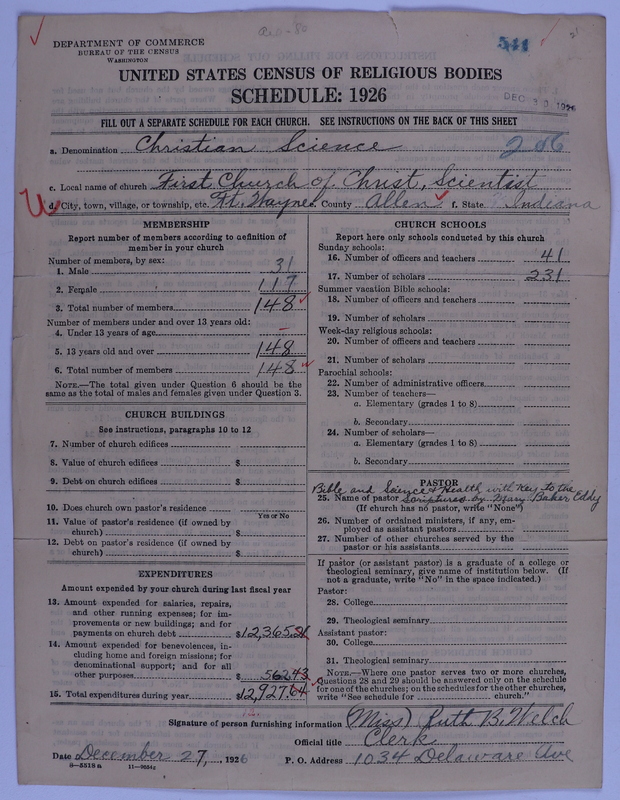 DEPARTMENT OF COMMERCE
BUREAU OF THE CENSUS
WASHINGTON
541
UNITED STATES CENSUS OF RELIGIOUS BODIES
SCHEDULE: 1926
DEC 30 1926
FILL OUT A SEPARATE SCHEDULE FOR EACH CHURCH. SEE INSTRUCTIONS ON THE BACK OF THIS SHEET
a. Denomination Christian Science 286
c. Local name of church First Church of Christ, Scientist
d. City, town, village, or township, etc. Ft. Wayne e. County Allen f. State Indiana
MEMBERSHIP
Report number of members according to definition of
member in your church
Number of members, by sex:
1. Male 31
2. Female 117
3. Total number of members 148
Number of members under and over 13 years old:
4. Under 13 years of age –
5. 13 years old and over 148
6. Total number of members 148
NOTE.—The total given under Question 6 should be the
same as the total of males and females given under Question 3.
CHURCH BUILDINGS
See instructions, paragraphs 10 to 12
7. Number of church edifices
8. Value of church edifices $
9. Debt on church edifices $
10. Does church own pastor's residence
Yes or No
11. Value of pastor's residence (if owned by
church) $
12. Debt on pastor's residence (if owned by
church) $
EXPENDITURES
Amount expended by your church during last fiscal year
13. Amount expended for salaries, repairs,
and other running expenses; for im-
provements or new buildings; and for
payments on church debt $12,365.21
14. Amount expended for benevolences, in-
cluding home and foreign missions; for
denominational support; and for all
other purposes $ 562.43
15. Total expenditures during year $12,927.64
CHURCH SCHOOLS
Report here only schools conducted by this church
Sunday schools:
16. Number of officers and teachers 41
17. Number of scholars 231
Summer vacation Bible schools:
18. Number of officers and teachers
19. Number of scholars
Week-day religious schools:
20. Number of officers and teachers
21. Number of scholars
Parochial schools:
22. Number of administrative officers
23. Number of teachers—
a. Elementary (grades 1 to 8)
b. Secondary
24. Number of scholars—
a. Elementary (grades 1 to 8)
b. Secondary
PASTOR
Bible and Science & Health with Key to the
25. Name of pastor Scriptures by Mary Baker Eddy
(If church has no pastor, write "None")
26. Number of ordained ministers, if any, em-
ployed as assistant pastors
27. Number of other churches served by the
pastor or his assistants
If pastor (or assistant pastor) is a graduate of a college or
theological seminary, give name of institution below. (If
not a graduate, write "No" in the space indicated.)
Pastor:
28. College
29. Theological seminary
Assistant pastor:
30. College
31. Theological seminary
NOTE.—Where one pastor serves two or more churches,
Questions 28 and 29 should be answered only on the schedule
for one of the churches; on the schedules for the other churches,
write "See schedule for church."
Signature of person furnishing information (Miss) Ruth B. Welch
Official title Clerk
Date December 27, 1926 P. O. Address 1034 Delaware Ave
8—5518 a 11—9554